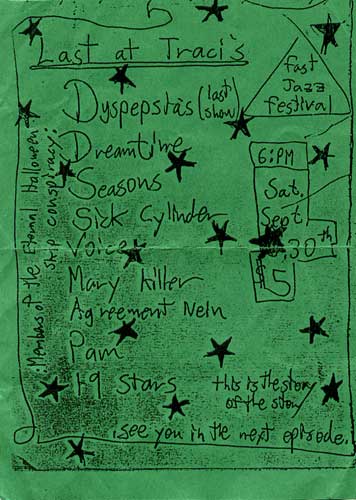 Last at Traci's
Dyspepsias (last show)
Fast
Jazz
Festival
Dreamtime
Seasons
Sick Cylinder
Voices
Mary Killer
Agreement Nein
Pam
19 Stars
6:PM
Sat.
Sept.
30th
$5
:Members of the Eternal Halloween
strip conspiracy:
this is the story
of the story
.see you in the next episode.